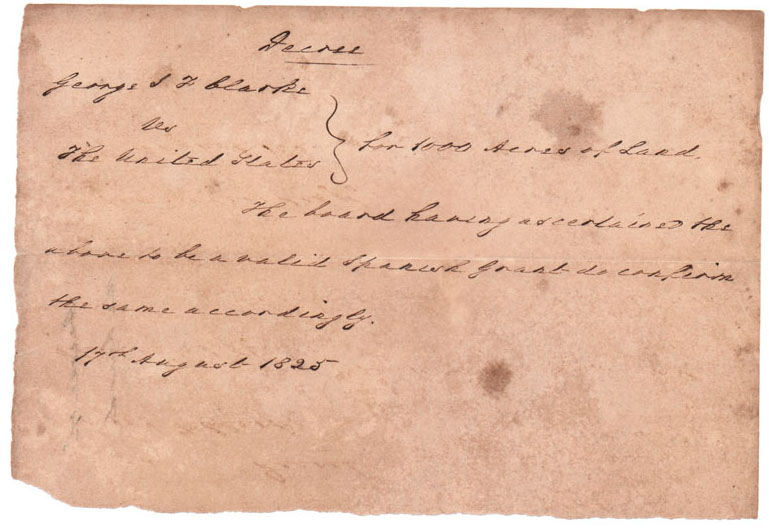 Decree
George J F Clarke
vs
The United States
For 1000 Acres of Land.
The board having ascertained the
above to be a valid Spanish Grant do confirm
the same accordingly.
17th August 1825